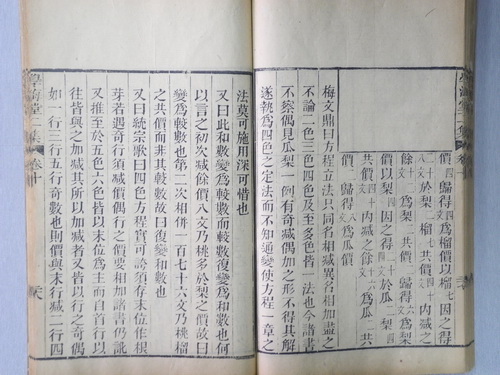 價歸得四文為榴價以榴七因之得
八文於梨二榴七共價四十文內減之
餘十二文為梨二共價二歸得六文為梨
價以梨四因之得四文於瓜二梨四
共價四十文內減之餘十六文為瓜二共
價二歸得八文為瓜價
梅文鼎曰方程立法只同名相減異名相加盡之
不論二色三色四色及至多色皆一法也今諸書
不察偶見瓜梨一例有奇減偶加之形不得其解
遂執為四色之定法而不知通變使方程一章之
法莫可施用深可惜也
又曰此和數變為較數而較數復變為和數也何
以言之初次減餘價八文乃桃多於梨之價故曰
變為較數也第二次相併一百七十六文乃桃榴
之共價而非其較數故曰復變和數也
又曰統宗歌曰四色方程實可誇須存末位作根
芽若遇奇行須減價偶行之價要相加諸書仍訛
又推至於五色六色皆以末位為主而自首行以
往皆與之加減其所以加減者又皆以行之奇偶
如一行三行五行奇數也則價與末行減二行四
學海堂二集 卷十